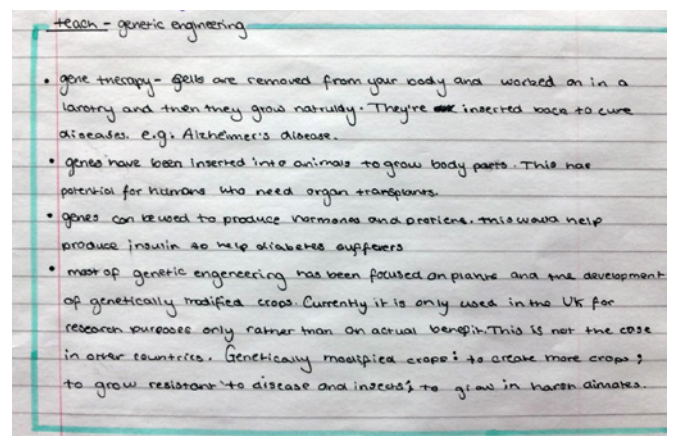 teach - genetic engineering
• gene therapy - cells are removed from your body and worked on in a
larotry and then they grow natruldy. They're inserted back to cure
diseases. e.g: Alzheimer's disease.
• genes have been inserted into animals to grow body parts. This has
potential for humans who need organ transplants.
• genes can be used to produce hormones and protiens. this would help
produce insulin to help diabetes sufferers
• most of genetic engeneering has been focused on plants and the development
of genetically modified crops. Currently it is only used in the UK for
research purposes only rather than on actual benefit. This is not the case
in other countries. Genetically modified crops: to create more crops;
to grow resistant to disease and insects; to grow in harsh climates.